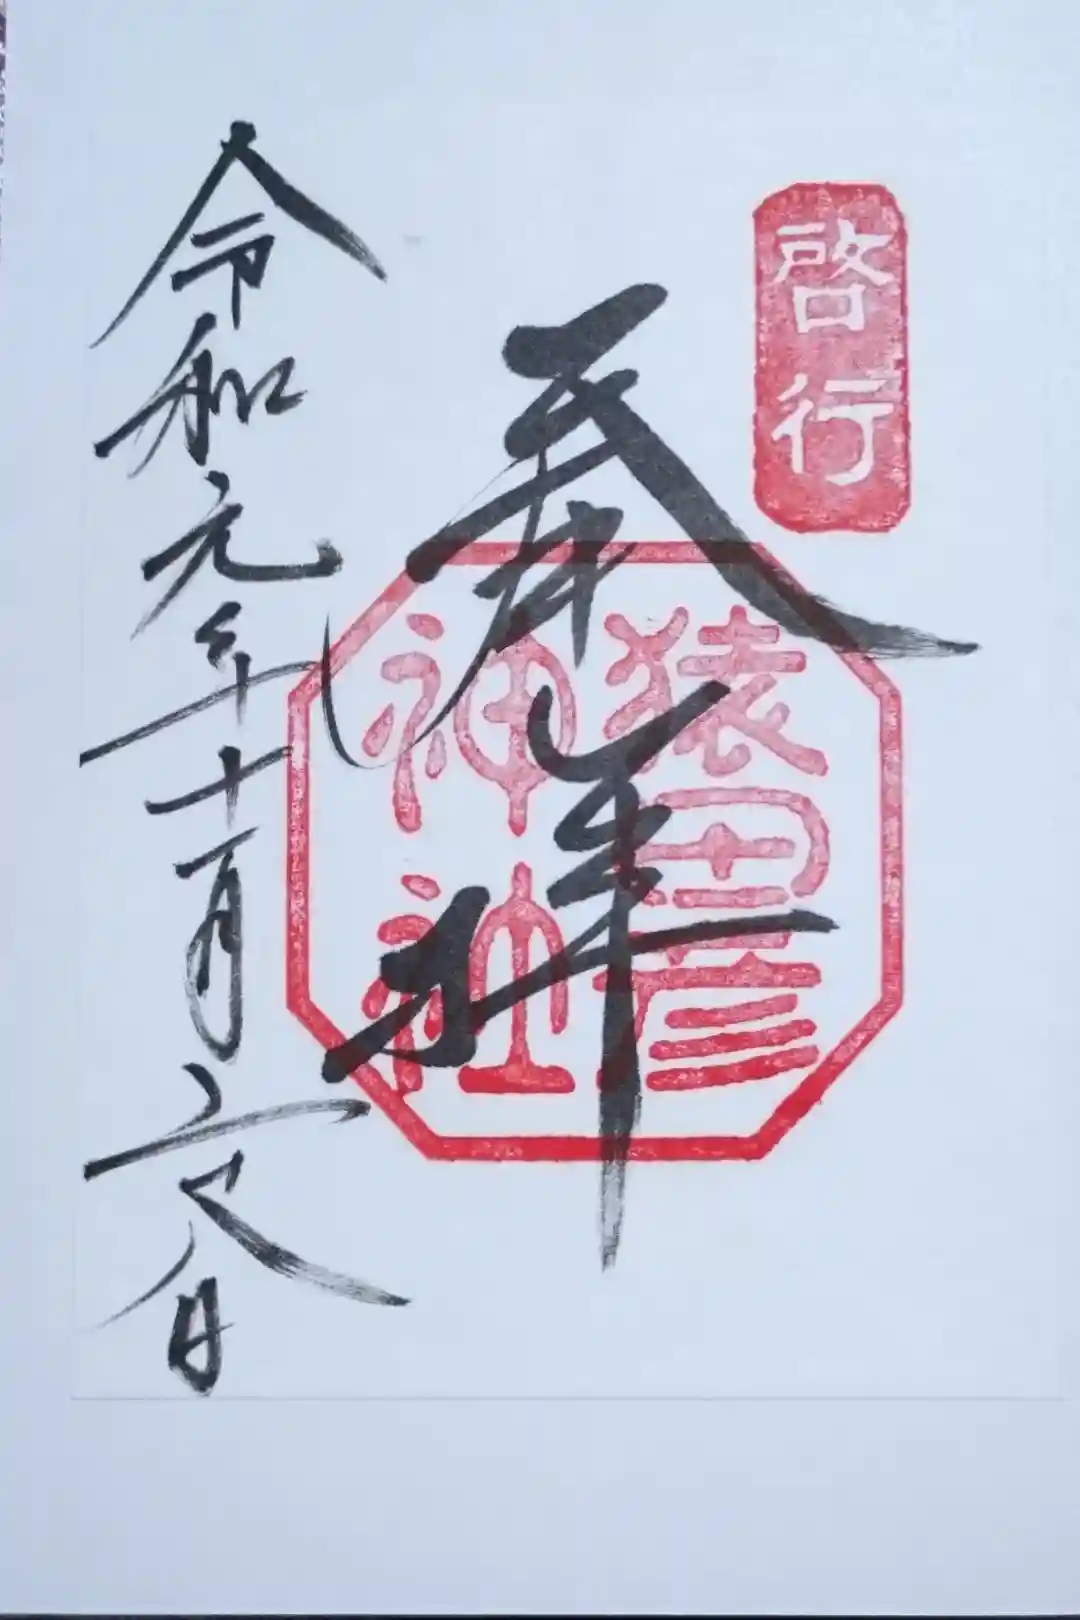 啓行
奉拝
猿田彦
神社
令和元年十一月六日